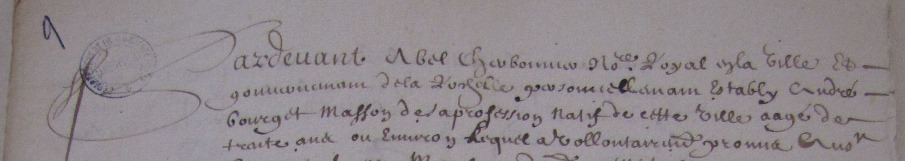 9
Pardevant Abel Cherbonnier No.re Royal en la Ville Et
gouvernement de la Rochelle personnellement Estably André
bourget Masson de sa profession Natif de cette Ville aagé de
trante ans ou Environ Lequel a Vollontairemt promis